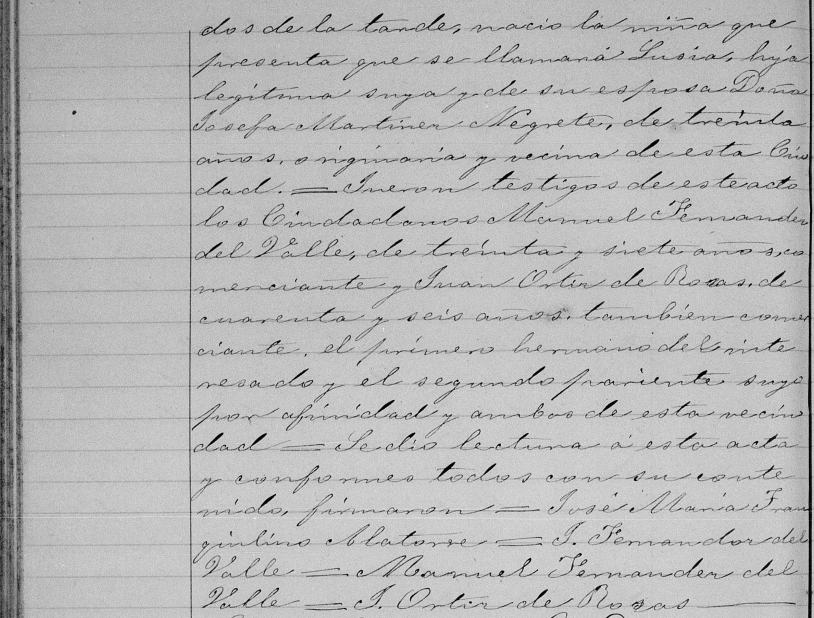 dos de la tarde, nacio la niña que
presenta que se llamará Lusia, hija
legítima suya y de su esposa Doña
Josefa Martinez Negrete, de treinta
años, originaria y vecina de esta Ciu
dad. = Fueron testigos de este acto
los Ciudadanos Manuel Fernandez
del Valle, de treinta y siete años, co
merciante y Juan Ortiz de Rozas, de
cuarenta y seis años, tambien comer
ciante, el primero hermano del inte
resado y el segundo pariente suyo
por afinidad y ambos de esta vecin
dad = Se dio lectura á esta acta
y conformes todos con su conte
nido, firmaron = José María Fran
Alatorre = J. Fernandez del
Valle = Manuel Fernandez del
Valle = J. Ortiz de Rozas